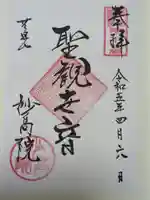 奉拝
令和五年四月六日
聖観世音
妙高院